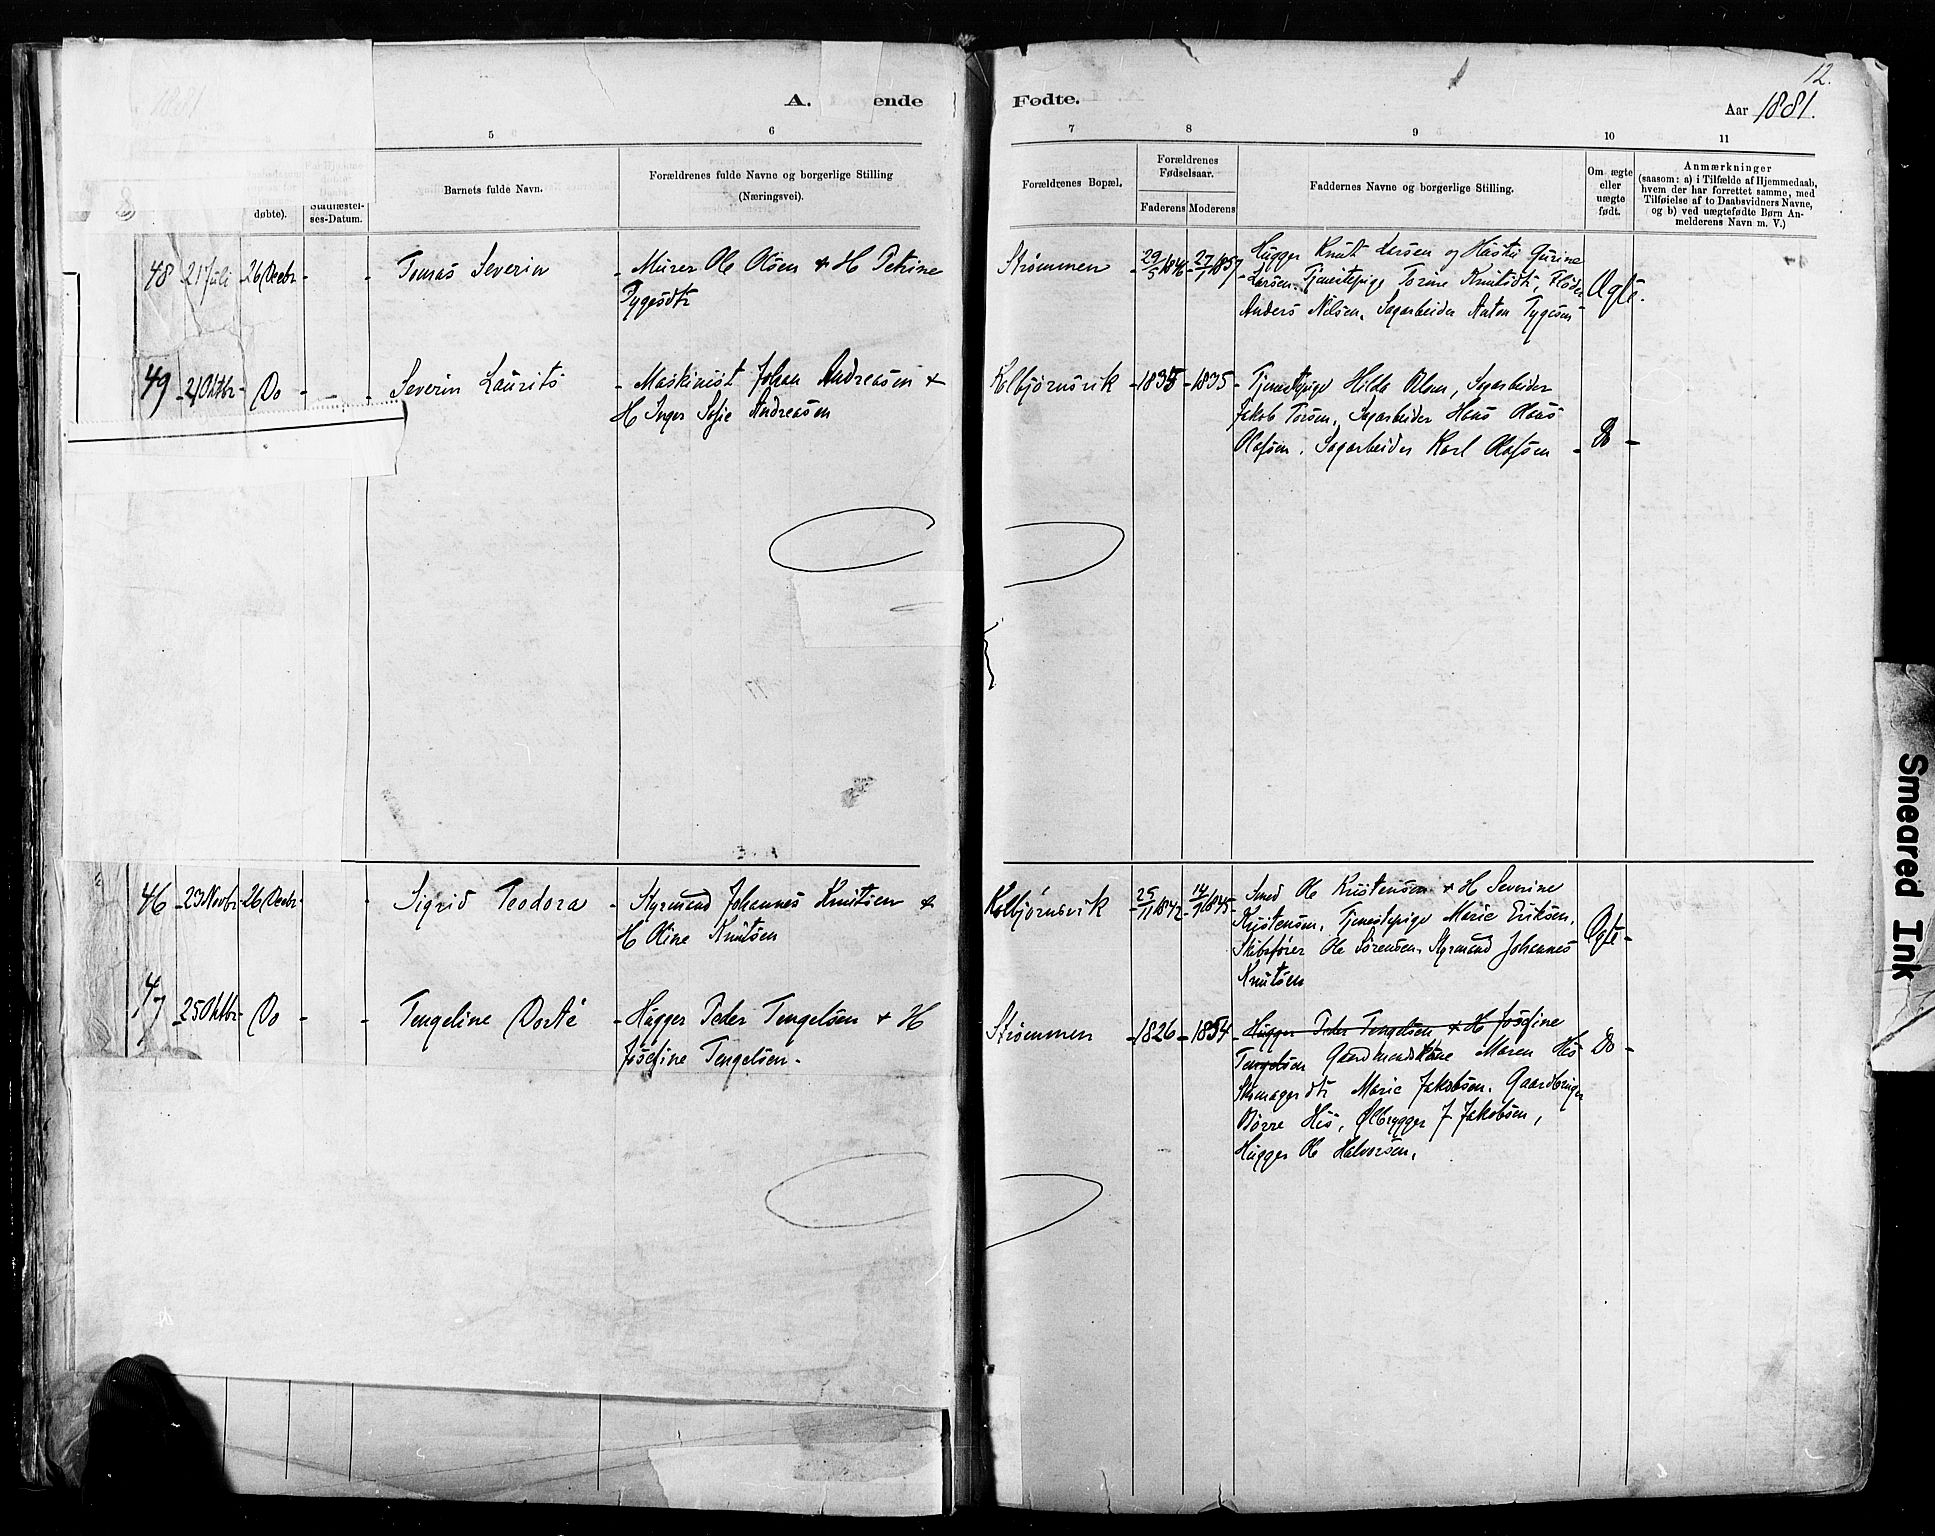 12.
A. ende Fødte.
Aar 1881.
5 6 7 8 9 10 11
døbte).
ses-Datum.
Barnets fulde Navn.
Forældrenes fulde Navne og borgerlige Stilling
(Næringsvei).
Forældrenes Bopæl.
Forældrenes
Fødselsaar.
Faderens Moderens
Faddernes Navne og borgerlige Stilling.
Om ægte
eller
uægte
født.
Anmærkninger
(saasom: a) i Tilfælde af Hjemmedaab,
hvem der har forrettet samme, med
Tilføielse af to Daabsvidners Navne,
og b) ved uægtefødte Børn An-
melderens Navn m. V.)
48 21 Juli 26 Decbr Tomas Severin
Murer Ole Olsen + H Petrine
Tygesdtr
Strømmen 29/5 1846 27/7 1857
Hugger Knut Larsen og Hustru Gurine
Larsen. Tjenstepige Torine Knutsdtr,
Anders Nilsen, Sagarbeider Anton Tygesen
Ægte.
49 21 Oktbr Do Severin Laurits
Maskinist Johan Andreasen +
H Inger Sofie Andreasen
Kolbjørnsvik 1835 1835
Tjenestepige Hilda Olsen, Sagarbeider
Jakob Torsen, Sagarbeider Hans Claus
Olafsen, Sagarbeider Karl Olafsen
Do
46 23 Novbr 26 Decbr Sigrid Teodora
Styrmand Johannes Knutsen +
H Oline Knutsen
Kolbjørnsvik 25/11 1842 14/9 1845
Smed Ole Kristensen + H Severine
Kristensen, Tjenestepige Marie Eriksen,
Skibsfører Ole Sørensen, Styrmand Johannes
Knutsen
Ægte
47 25 Oktbr Do Tengeline Dorte
Hugger Peder Tengelsen + H
Josefine Tengelsen
Strømmen 1826 1854
Hugger Peder Tengelsen + H Josefine
Tengelsen Gaardmandskone Maren His
Skomagerdtr Marie Jakobsen. Gaardbruger
Børre His, Ølbrygger J Jakobsen,
Hugger Ole Halvorsen,
Do
Smeared Ink